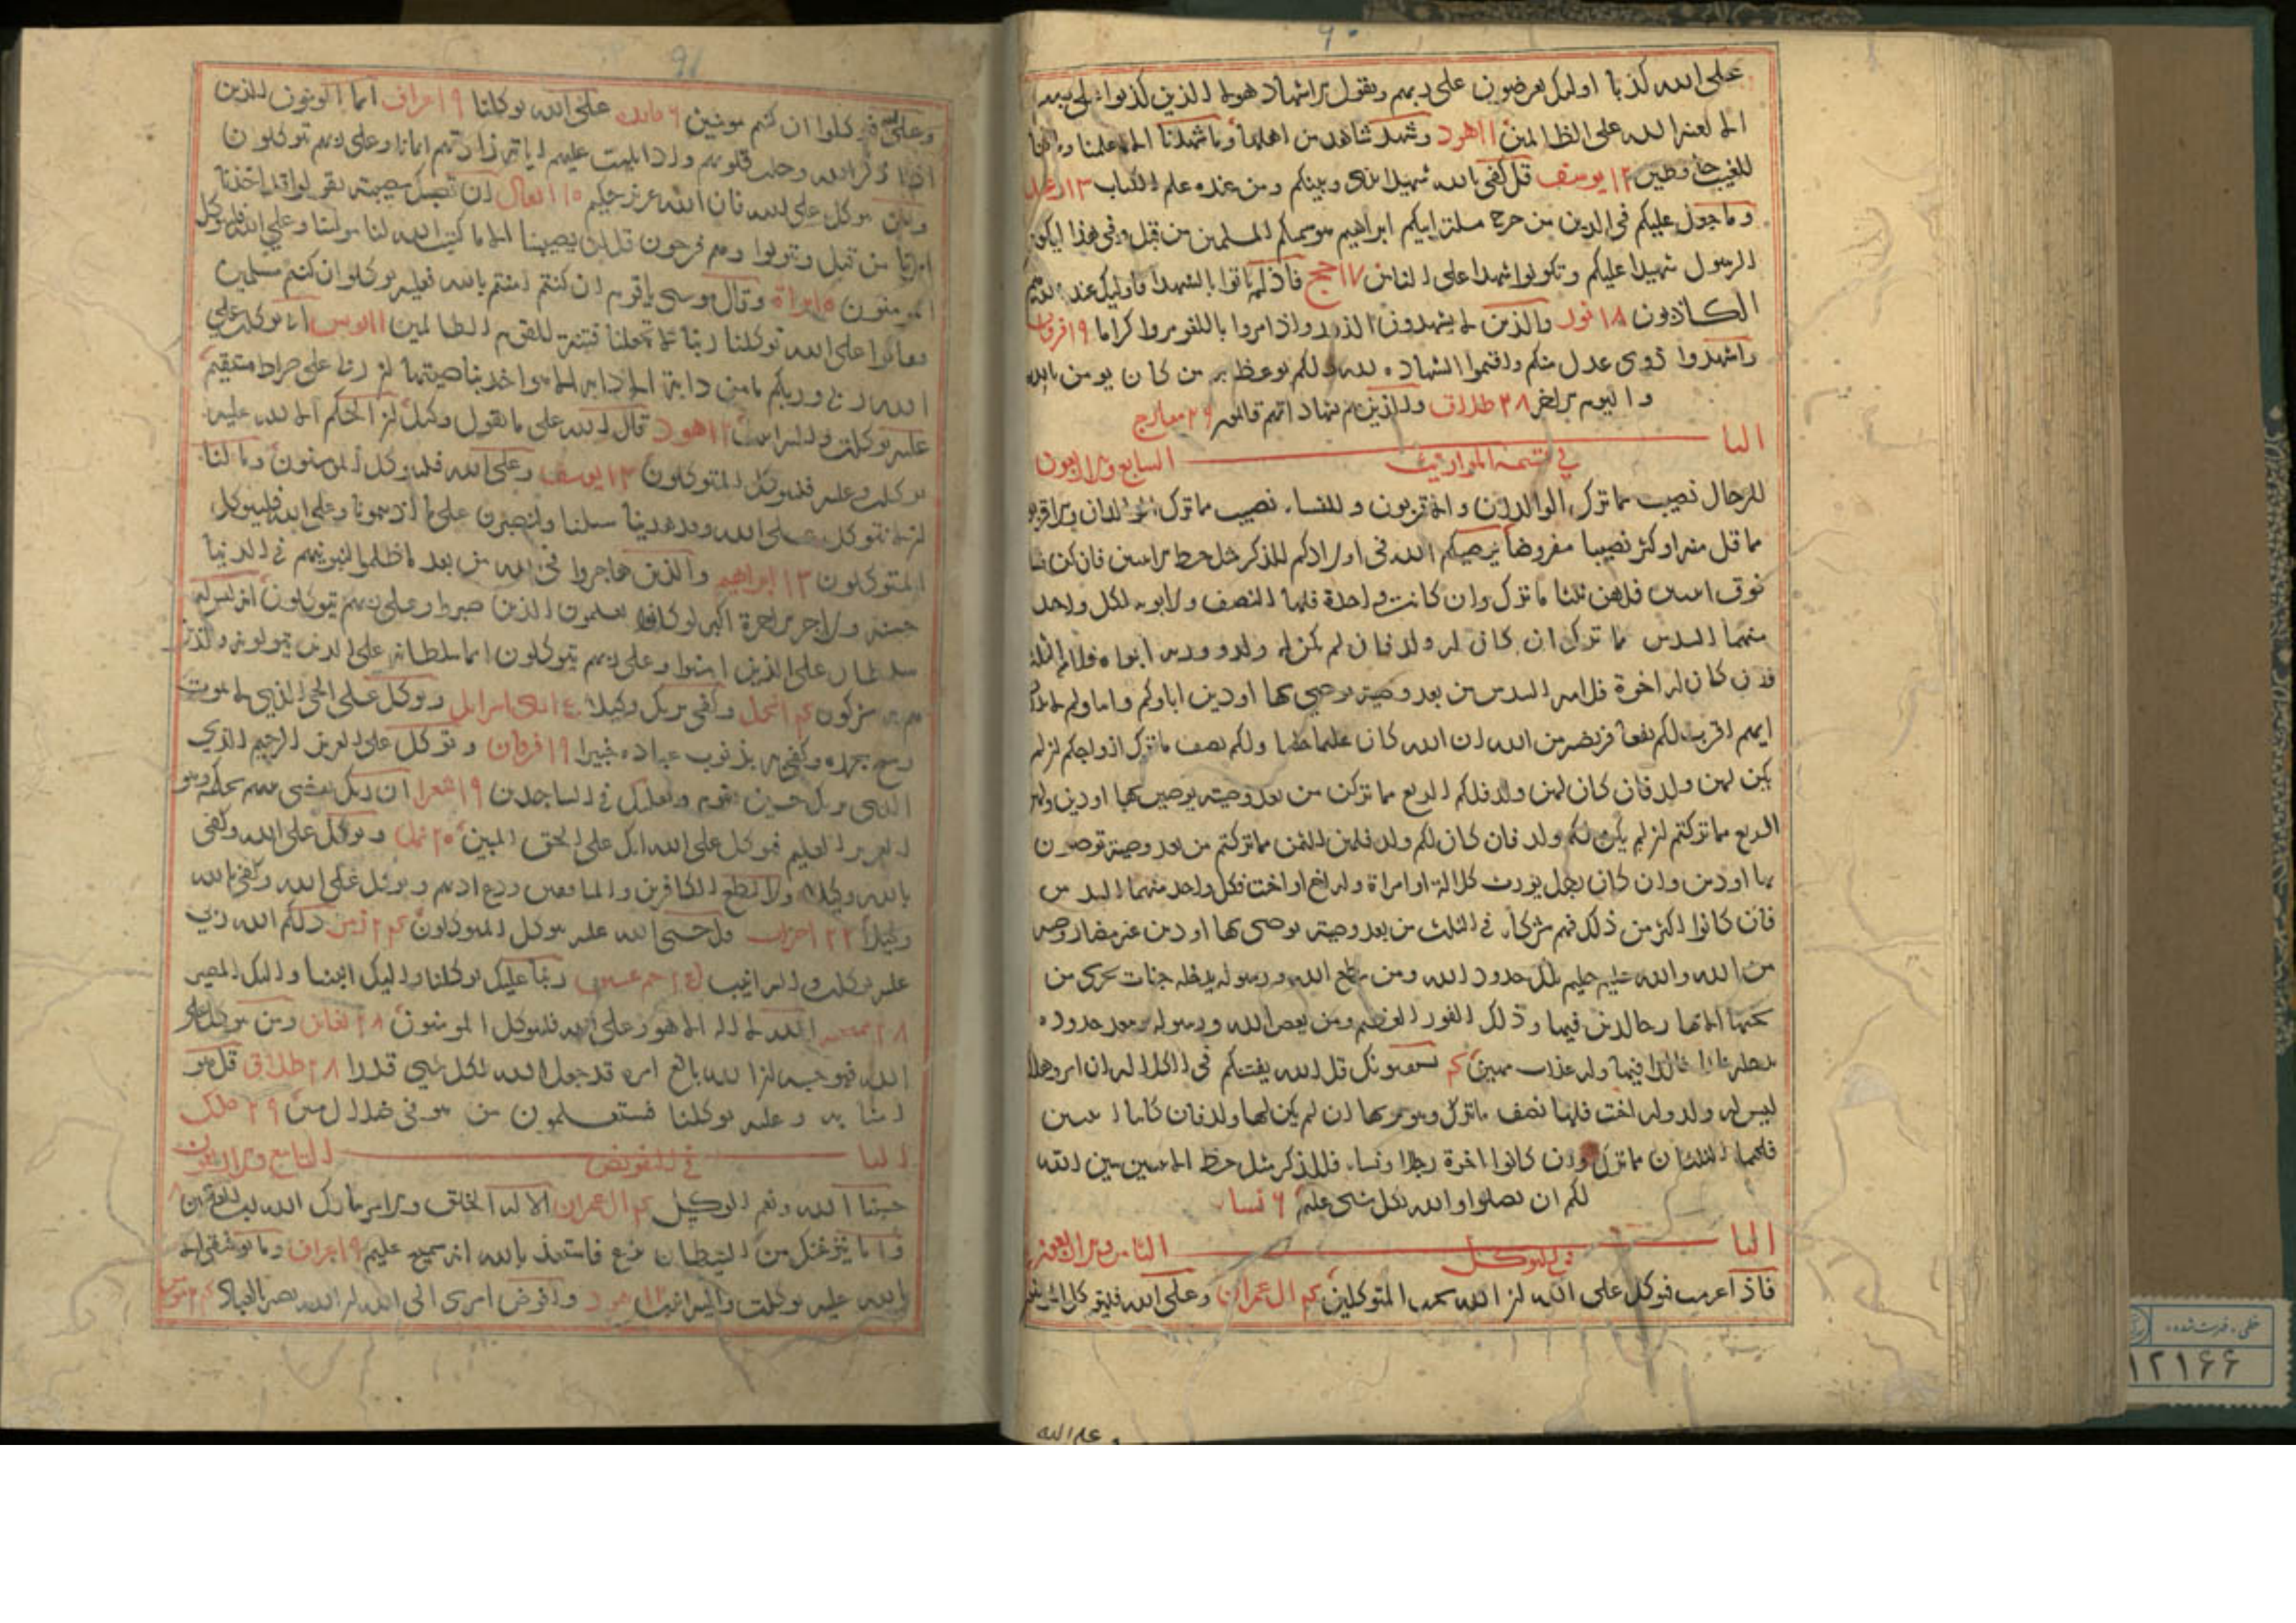 ۹۰
على الله كذبا اولئك يعرضون على ربهم ويقول الاشهاد هولا الذين كذبوا على ربهم
الا لعنة الله على الظالمين ۱۱ هود وشهد شاهد من اهلها وما شهدنا الا بما علمنا وما كنا
للغيب حافظين ۱۲ يوسف قل كفى بالله شهيدا بيني وبينكم ومن عنده علم الكتاب ۱۳ رعد
وما جعل عليكم في الدين من حرج ملة ابيكم ابراهيم هو سميكم المسلمين من قبل وفي هذا ليكون
الرسول شهيدا عليكم وتكونوا شهدا على الناس ۱۷ حج فاذ لم ياتوا بالشهدا فاوليك عند الله هم
الكاذبون ۱۸ نور والذين لا يشهدون الزور واذا مروا باللغو مروا كراما ۱۹ فرقان
واشهدوا ذوى عدل منكم واقيموا الشهاده لله ذلكم يوعظ به من كان يومن بالله
واليوم الاخر ۲۸ طلاق والذين هم بشهاداتهم قائمون ۲۹ معارج
البا السابع والاربعون
في قسمة المواريث
للرجال نصيب مما ترك الوالدان والاقربون وللنسا نصيب مما ترك الوالدان والاقربون
مما قل منه او كثر نصيبا مفروضا يوصيكم الله في اولادكم للذكر مثل حظ الانثيين فان كن نسا
فوق اثنتين فلهن ثلثا ما ترك وان كانت واحدة فلها النصف ولابويه لكل واحد
منهما السدس مما ترك ان كان له ولد فان لم يكن له ولد وورثه ابواه فلامه الثلث
فان كان له اخوة فلامه السدس من بعد وصية يوصي بها او دين اباوكم وابناوكم لا تدرون
ايهم اقرب لكم نفعا فريضة من الله ان الله كان عليما حكيما ولكم نصف ما ترك ازواجكم ان لم
يكن لهن ولد فان كان لهن ولد فلكم الربع مما تركن من بعد وصية يوصين بها او دين ولهن
الربع مما تركتم ان لم يكن لكم ولد فان كان لكم ولد فلهن الثمن مما تركتم من بعد وصية توصون
بها او دين وان كان رجل يورث كلالة او امراة وله اخ او اخت فلكل واحد منهما السدس
فان كانوا اكثر من ذلك فهم شركا في الثلث من بعد وصية يوصى بها او دين غير مضار وصية
من الله والله عليم حليم تلك حدود الله ومن يطع الله ورسوله يدخله جنات تجري من
تحتها الانهار خالدين فيها وذلك الفوز العظيم ومن يعص الله ورسوله ويتعد حدوده
يدخله نارا خالدا فيها وله عذاب مهين ۴ يستفتونك قل الله يفتيكم في الكلاله ان امرو هلك
ليس له ولد وله اخت فلها نصف ما ترك وهو يرثها ان لم يكن لها ولد فان كانتا اثنتين
فلهما الثلثان مما ترك وان كانوا اخوة رجالا ونسا فللذكر مثل حظ الانثيين يبين الله
لكم ان تضلوا والله بكل شى عليم ۶ نسا
البا الثامن والاربعون
في التوكل
فاذا عزمت فتوكل على الله ان الله يحب المتوكلين ۴ ال عمران وعلى الله فليتوكل المومنون
وعلى الله
۹۱
وعلى الله فتوكلوا ان كنتم مومنين ۶ مائده على الله توكلنا ۹ اعراف انما المومنون الذين
اذا ذكر الله وجلت قلوبهم واذا تليت عليهم اياته زادتهم ايمانا وعلى ربهم يتوكلون
ومن يتوكل على الله فان الله عزيز حكيم ۱۰ انفال ان تصبك مصيبة يقولوا قد اخذنا
امرنا من قبل ويتولوا وهم فرحون قل لن يصيبنا الا ما كتب الله لنا هو مولينا وعلى الله فليتوكل
المومنون ۱۰ براة وقال موسى يا قوم ان كنتم امنتم بالله فعليه توكلوا ان كنتم مسلمين
فقالوا على الله توكلنا ربنا لا تجعلنا فتنة للقوم الظالمين ۱۱ يونس انى توكلت على
الله ربي وربكم ما من دابة الا هو اخذ بناصيتها ان ربي على صراط مستقيم
عليه توكلت واليه انيب ۱۲ هود قال الله على ما نقول وكيل ان الحكم الا لله عليه
توكلت وعليه فليتوكل المتوكلون ۱۳ يوسف وعلى الله فليتوكل المومنون وما لنا
ان لا نتوكل على الله وقد هدينا سبلنا ولنصبرن على ما اذيتمونا وعلى الله فليتوكل
المتوكلون ۱۳ ابراهيم والذين هاجروا في الله من بعد ما ظلموا لنبوئنهم في الدنيا
حسنة ولاجر الاخرة اكبر لو كانوا يعلمون الذين صبروا وعلى ربهم يتوكلون انه ليس له
سلطان على الذين امنوا وعلى ربهم يتوكلون انما سلطانه على الذين يتولونه والذين
هم به مشركون ۱۴ نحل وكفى بربك وكيلا بنى اسرايل وتوكل على الحي الذي لا يموت
وسبح بحمده وكفى به بذنوب عباده خبيرا ۱۹ فرقان وتوكل على العزيز الرحيم الذي
الذى يريك حين تقوم وتقلبك في الساجدين ۱۹ شعرا ان ربك يقضي بينهم بحكمه وهو
العزيز العليم فتوكل على الله انك على الحق المبين ۲۰ نمل وتوكل على الله وكفى
بالله وكيلا ولا تطع الكافرين والمنافقين ودع اذيهم وتوكل على الله وكفى بالله
وكيلا ۲۲ احزاب قل حسبي الله عليه يتوكل المتوكلون ۲۴ زمر ذلكم الله ربي
عليه توكلت واليه انيب حم عسق ربنا عليك توكلنا واليك انبنا واليك المصير
۲۸ ممتحنه الله لا اله الا هو وعلى الله فليتوكل المومنون ۲۸ تغابن ومن يتوكل على
الله فهو حسبه ان الله بالغ امره قد جعل الله لكل شي قدرا ۲۸ طلاق قل هو
امنا به وعليه توكلنا فستعلمون من هو في ضلال مبين ۲۹ ملك
البا التاسع والاربعون
في التفويض
حسبنا الله ونعم الوكيل ۴ ال عمران الا له الخلق والامر تبارك الله رب العالمين ۸
واما ينزغنك من الشيطان نزغ فاستعذ بالله انه سميع عليم ۹ اعراف وما توفيقي الا
بالله عليه توكلت واليه انيب ۱۲ هود وافوض امرى الى الله ان الله بصير بالعباد ۲۴ مومن
خطى ، فهرست شده ،
۱۲۱۶۶